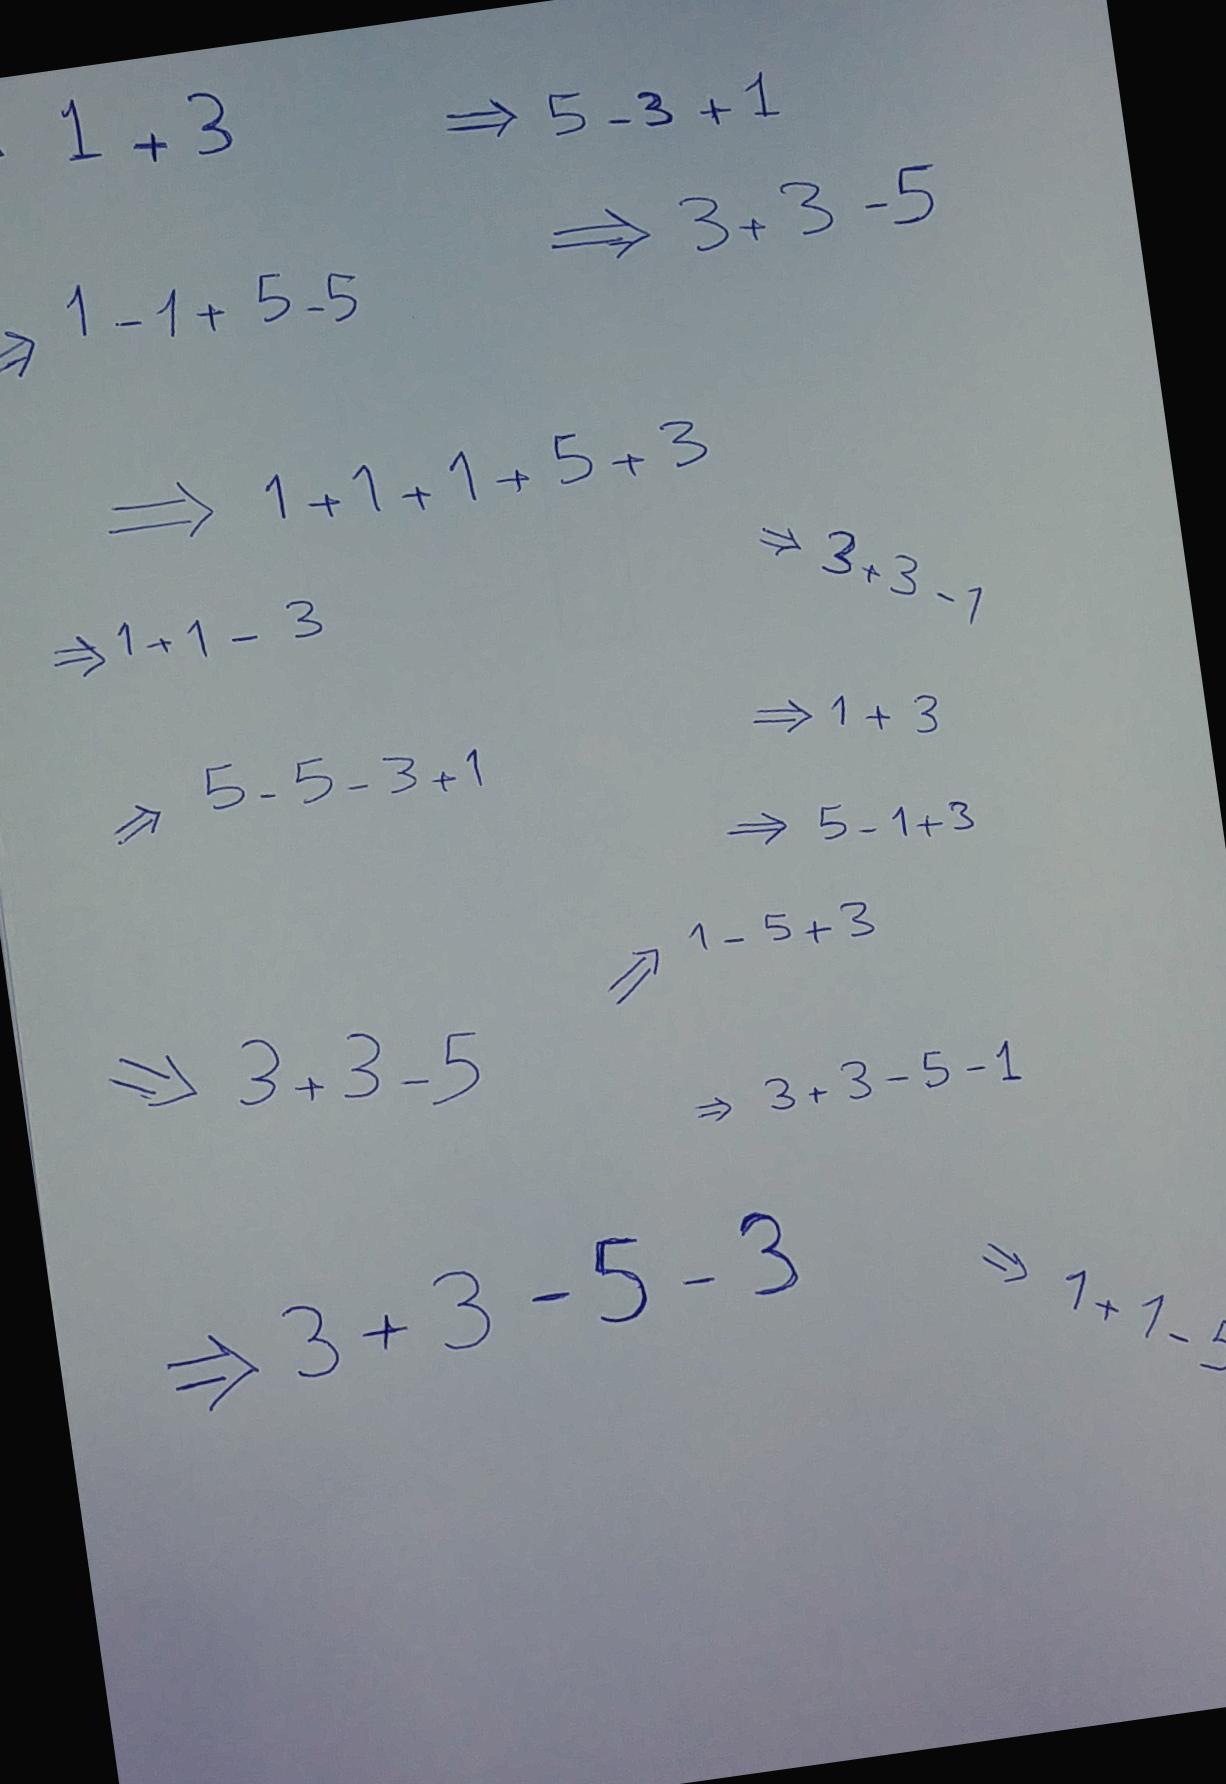 1 + 3
⇒ 5 - 3 + 1
⇒ 3 + 3 - 5
⇒ 1 - 1 + 5 - 5
⇒ 1 + 1 + 1 + 5 + 3
⇒ 3 + 3 - 1
⇒ 1 + 1 - 3
⇒ 1 + 3
⇒ 5 - 5 - 3 + 1
⇒ 5 - 1 + 3
⇒ 1 - 5 + 3
⇒ 3 + 3 - 5
⇒ 3 + 3 - 5 - 1
⇒ 3 + 3 - 5 - 3
⇒ 1 + 1 - 5